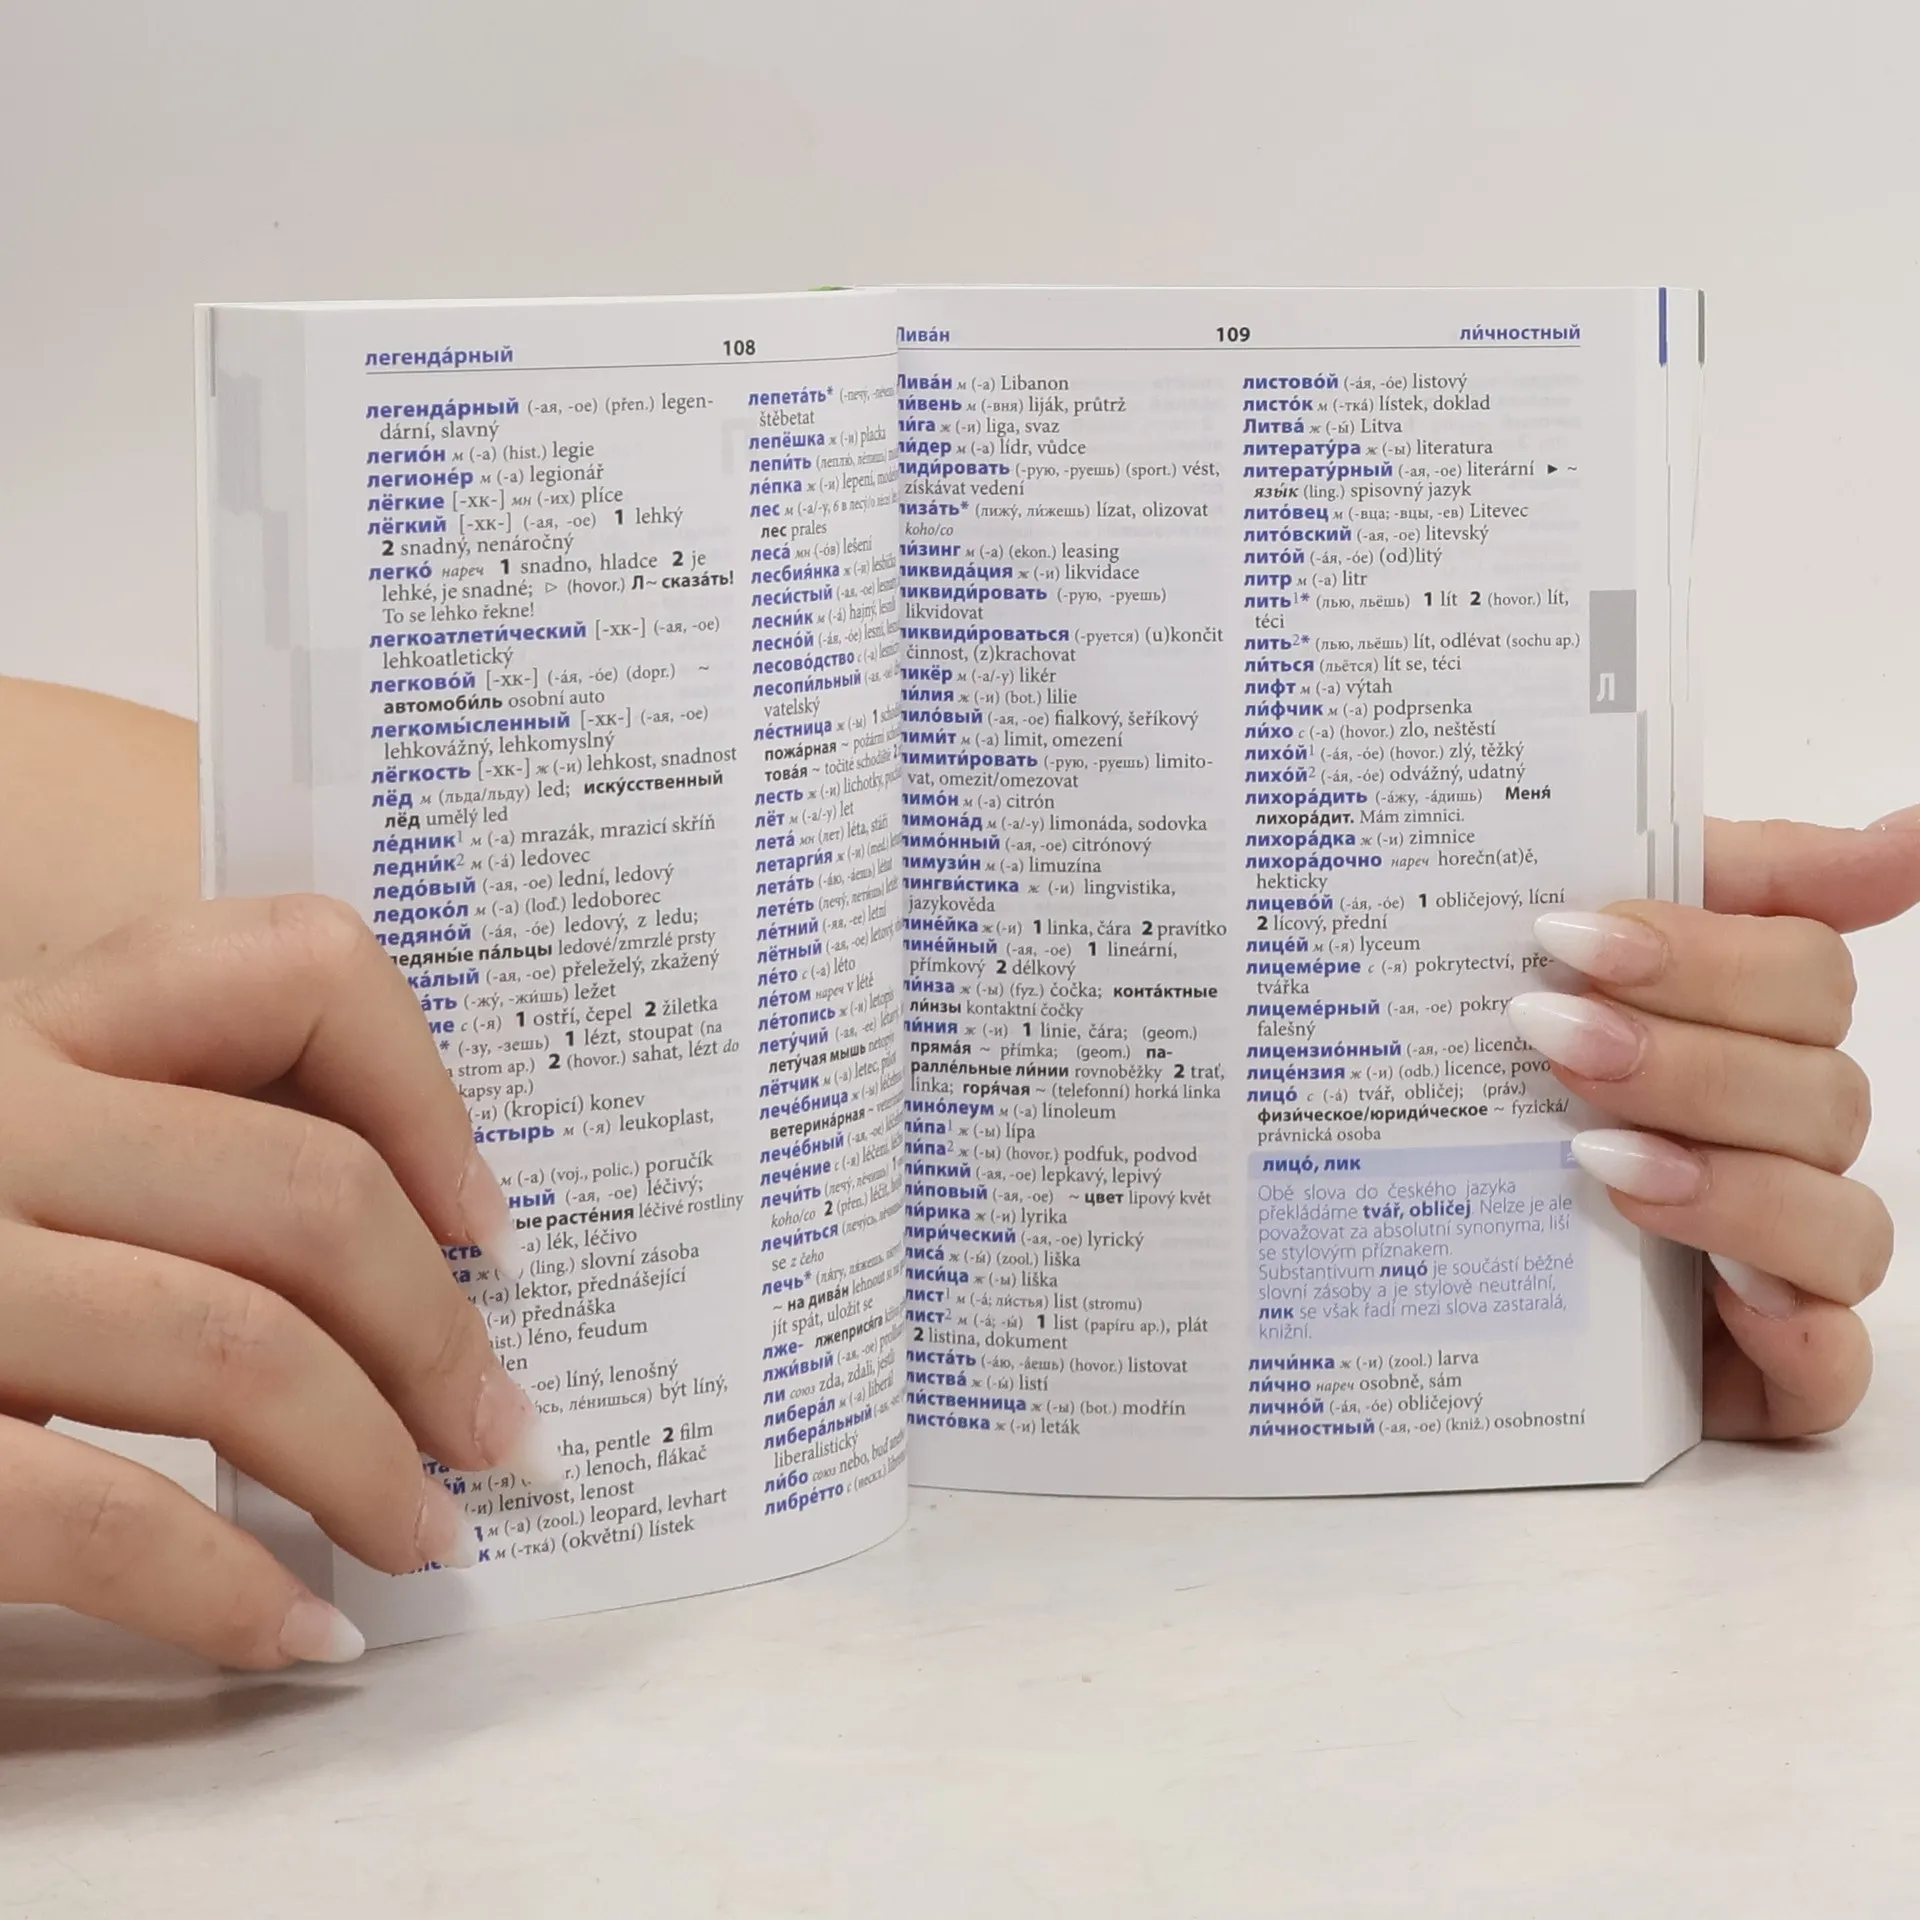 легенда́рный 108
легенда́рный (-ая, -ое) (přen.) legen-
dární, slavný
легио́н м (-а) (hist.) legie
легионе́р м (-а) legionář
лёгкие [-хк-] мн (-их) plíce
лёгкий [-хк-] (-ая, -ое) 1 lehký
2 snadný, nenáročný
легко́ нареч 1 snadno, hladce 2 je
lehké, je snadné; ▷ (hovor.) Л~ сказа́ть!
To se lehko řekne!
легкоатлети́ческий [-хк-] (-ая, -ое)
lehkoatletický
легково́й [-хк-] (-а́я, -о́е) (dopr.) ~
автомоби́ль osobní auto
легкомы́сленный [-хк-] (-ая, -ое)
lehkovážný, lehkomyslný
лёгкость [-хк-] ж (-и) lehkost, snadnost
лёд м (льда/льду) led; иску́сственный
лёд umělý led
ле́дник1 м (-а) mrazák, mrazicí skříň
ледни́к2 м (-а́) ledovec
ледо́вый (-ая, -ое) lední, ledový
ледоко́л м (-а) (loď.) ledoborec
ледяно́й (-а́я, -о́е) ledový, z ledu;
ледяны́е па́льцы ledové/zmrzlé prsty
(-ая, -ое) přeleželý, zkažený
(-жу́, -жи́шь) ležet
с (-я) 1 ostří, čepel 2 žiletka
* (-зу, -зешь) 1 lézt, stoupat (na
strom ap.) 2 (hovor.) sahat, lézt do
kapsy ap.)
(-и) (kropicí) konev
м (-я) leukoplast,
м (-а) (voj., polic.) poručík
(-ая, -ое) léčivý;
расте́ния léčivé rostliny
-а) lék, léčivo
(ling.) slovní zásoba
(-а) lektor, přednášející
(-и) přednáška
léno, feudum
-ое) líný, lenošný
ле́нишься) být líný,
pentle 2 film
м (-я) lenoch, flákač
(-и) lenivost, lenost
м (-а) (zool.) leopard, levhart
м (-тка́) (okvětní) lístek
лепета́ть*
štěbetat
лепёшка ж (-и) placka
лепи́ть
ле́пка ж (-и) lepení,
лес м
лес prales
леса́ мн (-о́в) lešení
лесбия́нка ж (-и)
леси́стый (-ая, -ое)
лесни́к м (-а́) hajný,
лесно́й (-а́я, -о́е) lesní,
лесово́дство с (-а)
лесопи́льный
vatelský
ле́стница ж (-ы) 1
пожа́рная ~ požární
това́я ~ točité schodiště
лесть ж (-и) lichotky,
лёт м (-а/-у) let
лета́ мн (лет) léta, stáří
летарги́я ж (-и) (med.)
лета́ть (-а́ю, -а́ешь) létat
лете́ть (лечу́, лети́шь)
ле́тний (-яя, -ее) letní
лётный (-ая, -ое)
ле́то с (-а) léto
ле́том нареч v létě
ле́топись ж (-и) letopis
лету́чий (-ая, -ее)
лету́чая мышь netopýr
лётчик м (-а) letec, pilot
лече́бница ж (-ы)
ветерина́рная ~
лече́бный (-ая, -ое)
лече́ние с (-я) léčení,
лечи́ть (лечу́, ле́чишь)
koho/co 2 (přen.) léčit,
лечи́ться
se z čeho
лечь* (ля́гу, ля́жешь,
~ на дива́н lehnout si na
jít spát, uložit se
лже- лжеприся́га
лжи́вый (-ая, -ое)
ли союз zda, zdali, jestli
либера́л м (-а) liberál
либера́льный
liberalistický
ли́бо союз nebo, buď anebo
либре́тто с (нескл.)
Лива́н 109 ли́чностный
Лива́н м (-а) Libanon
ли́вень м (-вня) liják, průtrž
ли́га ж (-и) liga, svaz
ли́дер м (-а) lídr, vůdce
лиди́ровать (-рую, -руешь) (sport.) vést,
získávat vedení
лиза́ть* (лижу́, ли́жешь) lízat, olizovat
koho/co
ли́зинг м (-а) (ekon.) leasing
ликвида́ция ж (-и) likvidace
ликвиди́ровать (-рую, -руешь)
likvidovat
ликвиди́роваться (-руется) (u)končit
činnost, (z)krachovat
ликёр м (-а/-у) likér
ли́лия ж (-и) (bot.) lilie
лило́вый (-ая, -ое) fialkový, šeříkový
лими́т м (-а) limit, omezení
лимити́ровать (-рую, -руешь) limito-
vat, omezit/omezovat
лимо́н м (-а) citrón
лимона́д м (-а/-у) limonáda, sodovka
лимо́нный (-ая, -ое) citrónový
лимузи́н м (-а) limuzína
лингви́стика ж (-и) lingvistika,
jazykověda
лине́йка ж (-и) 1 linka, čára 2 pravítko
лине́йный (-ая, -ое) 1 lineární,
přímkový 2 délkový
ли́нза ж (-ы) (fyz.) čočka; конта́ктные
ли́нзы kontaktní čočky
ли́ния ж (-и) 1 linie, čára; (geom.)
пряма́я ~ přímka; (geom.) па-
ралле́льные ли́нии rovnoběžky 2 trať,
linka; горя́чая ~ (telefonní) horká linka
лино́леум м (-а) linoleum
ли́па1 ж (-ы) lípa
ли́па2 ж (-ы) (hovor.) podfuk, podvod
ли́пкий (-ая, -ое) lepkavý, lepivý
ли́повый (-ая, -ое) ~ цвет lipový květ
ли́рика ж (-и) lyrika
лири́ческий (-ая, -ое) lyrický
лиса́ ж (-ы́) (zool.) liška
лиси́ца ж (-ы) liška
лист1 м (-а́; ли́стья) list (stromu)
лист2 м (-а́; -ы́) 1 list (papíru ap.), plát
2 listina, dokument
листа́ть (-а́ю, -а́ешь) (hovor.) listovat
листва́ ж (-ы́) listí
ли́ственница ж (-ы) (bot.) modřín
листо́вка ж (-и) leták
листово́й (-а́я, -о́е) listový
листо́к м (-тка́) lístek, doklad
Литва́ ж (-ы́) Litva
литерату́ра ж (-ы) literatura
литерату́рный (-ая, -ое) literární ► ~
язы́к (ling.) spisovný jazyk
лито́вец м (-вца; -вцы, -ев) Litevec
лито́вский (-ая, -ое) litevský
лито́й (-а́я, -о́е) (od)litý
литр м (-а) litr
лить1* (лью, льёшь) 1 lít 2 (hovor.) lít,
téci
лить2* (лью, льёшь) lít, odlévat (sochu ap.)
ли́ться (льётся) lít se, téci
лифт м (-а) výtah
ли́фчик м (-а) podprsenka
ли́хо с (-а) (hovor.) zlo, neštěstí
лихо́й1 (-а́я, -о́е) (hovor.) zlý, těžký
лихо́й2 (-а́я, -о́е) odvážný, udatný
лихора́дить (-а́жу, -а́дишь) Меня́
лихора́дит. Mám zimnici.
лихора́дка ж (-и) zimnice
лихора́дочно нареч horečn(at)ě,
hekticky
лицево́й (-а́я, -о́е) 1 obličejový, lícní
2 lícový, přední
лице́й м (-я) lyceum
лицеме́рие с (-я) pokrytectví, pře-
tvářka
лицеме́рный (-ая, -ое)
falešný
лицензио́нный (-ая, -ое)
лице́нзия ж (-и) (odb.) licence,
лицо́ с (-а́) tvář, obličej; (práv.)
физи́ческое/юриди́ческое ~ fyzická/
právnická osoba
лицо́, лик
Obě slova do českého jazyka
překládáme tvář, obličej. Nelze je ale
považovat za absolutní synonyma, liší
se stylovým příznakem.
Substantivum лицо́ je součástí běžné
slovní zásoby a je stylově neutrální,
лик se však řadí mezi slova zastaralá,
knižní.
личи́нка ж (-и) (zool.) larva
ли́чно нареч osobně, sám
лично́й (-а́я, -о́е) obličejový
ли́чностный (-ая, -ое) (kniž.) osobnostní
Л